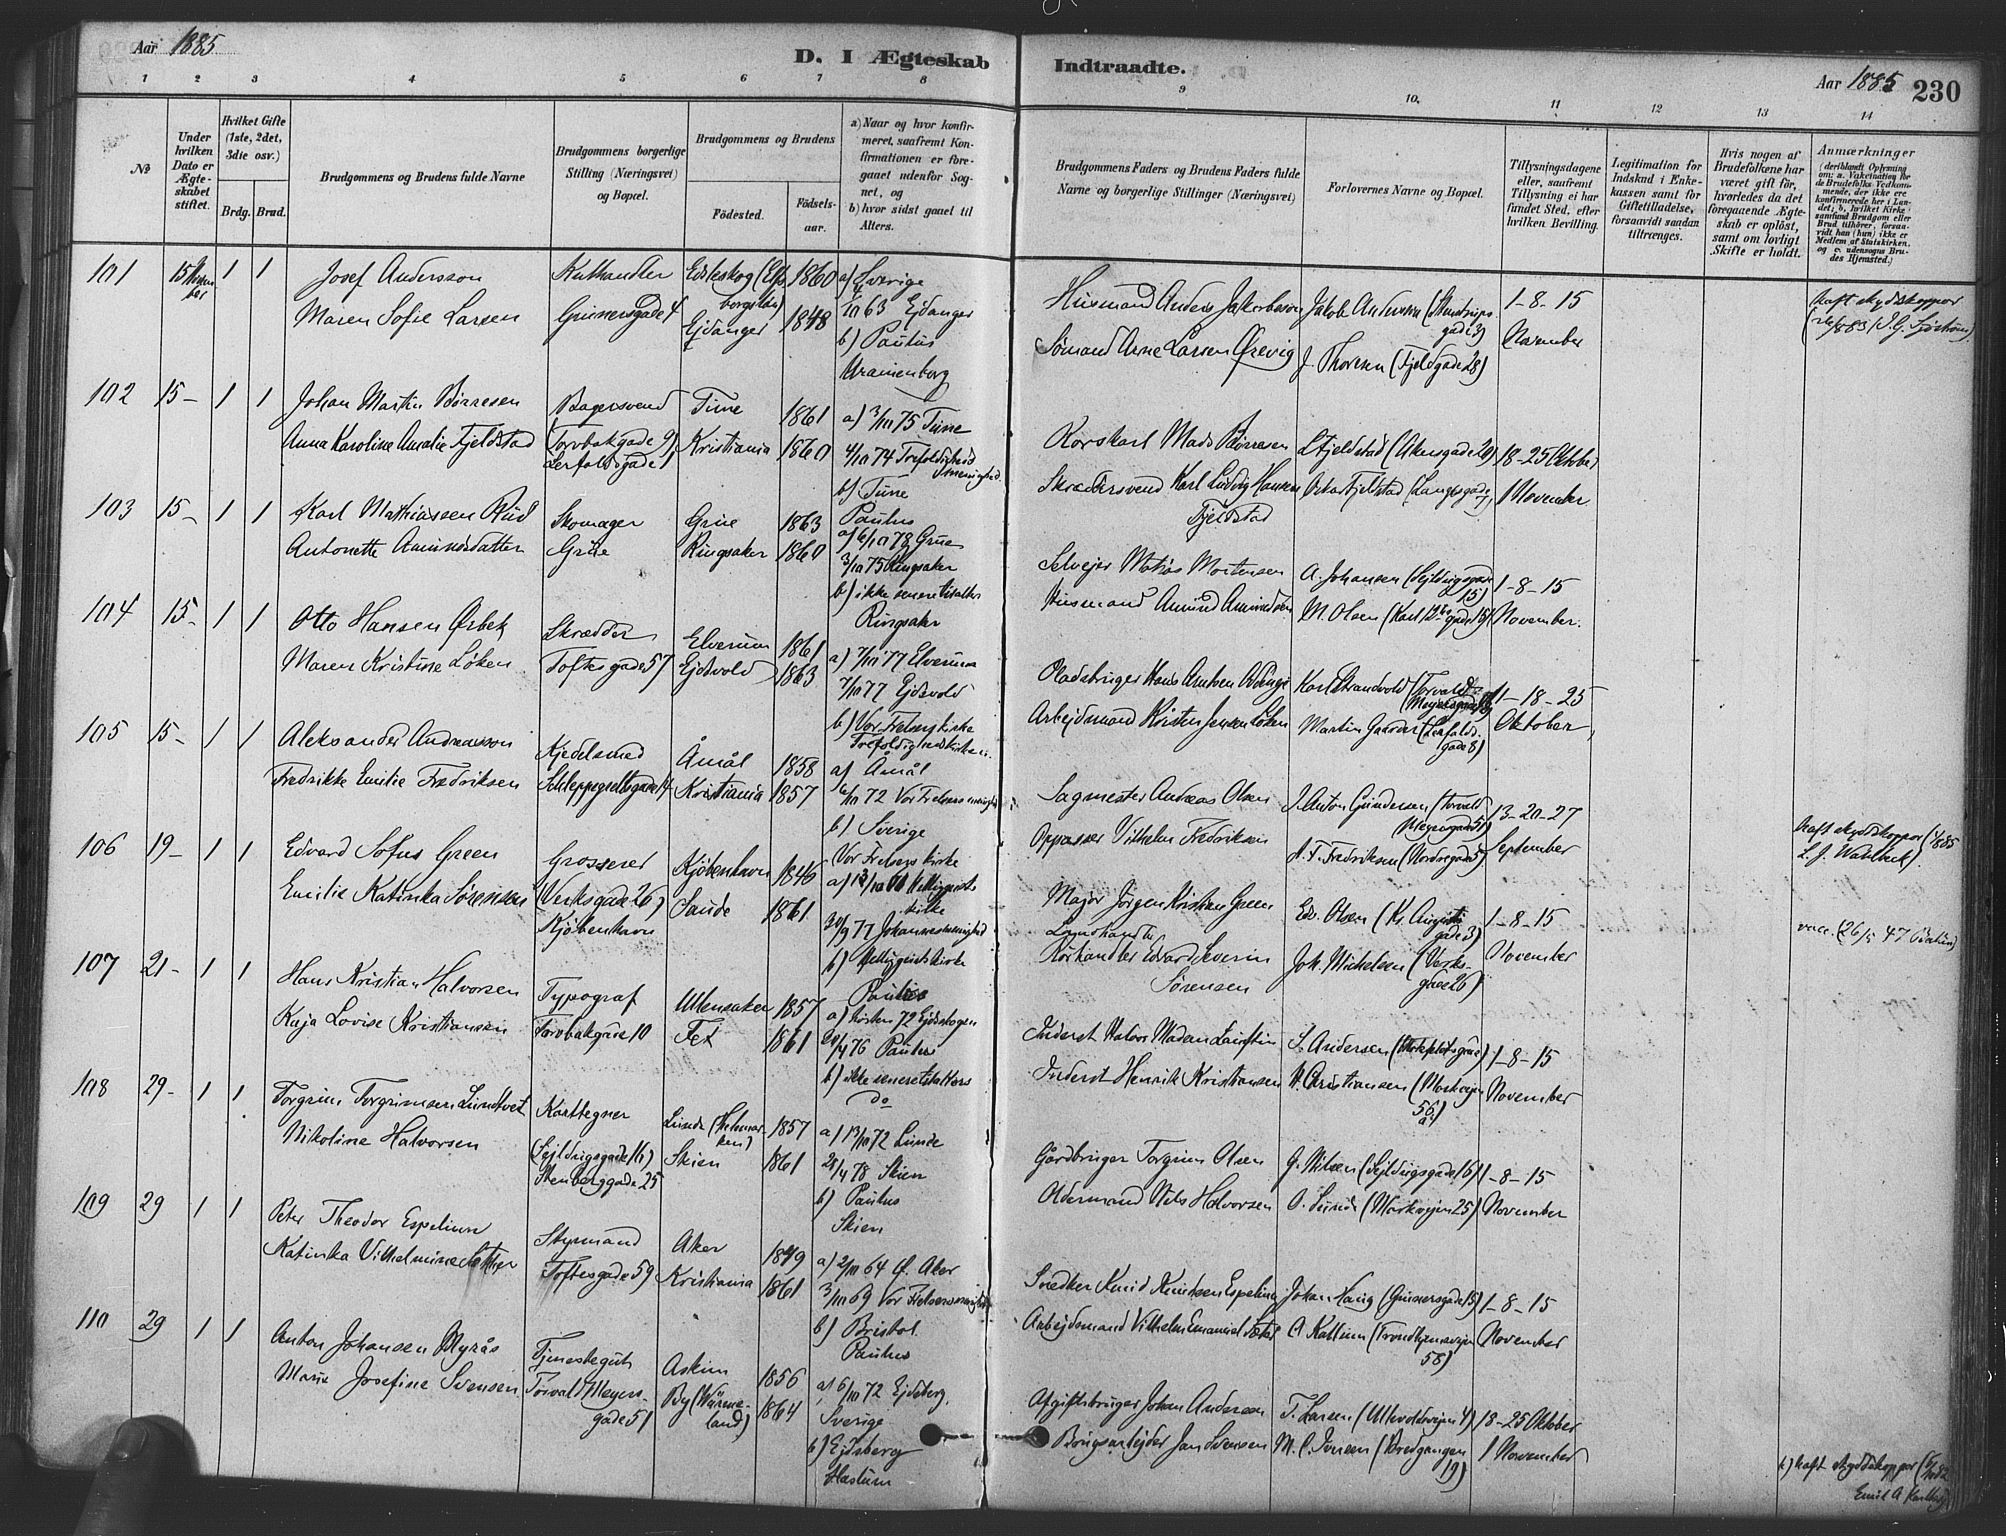 Aar 1885
D. I Ægteskab
1 2 3 4 5 6 7 8
№
Under hvilken Dato er Ægte-skabet stiftet.
Hvilket Gifte (1ste, 2det, 3die osv.)
Brdg. Brud.
Brudgommens og Brudens fulde Navne
Brudgommens borgerlige Stilling (Næringsvei) og Bopæl.
Brudgommens og Brudens
Fødested.
Fødsels-aar.
a) Naar og hvor konfir-
meret, saafremt Kon-
firmationen er fore-
gaaet udenfor Sog-
net, og
b) hvor sidst gaaet til
Alters.
101 15 November 1 1
Josef Andersson
Maren Sofie Larsen
Kuthandler
Grünersgade 4
Edsleskog (Elfs
borgslän) 1860
Ejdanger 1848
a) Sverige
63 Ejdanger
b) Paulus
Uranienborg
102 15 – 1 1
Johan Martin Børresen
Anna Karoline Amalie Fjeldstad
Bagersvend
(Torvbakgade 9)
Lerfaldsgade 1
Tune 1861
Kristiania 1860
a) 3/10 75 Tune
4/10 74 Trefoldigheds
menighed.
b) Tune
Paulus
103 15 – 1 1
Karl Mathiassen Rud
Antonette Amundsdatter
Skomager
Grue
Grue 1863
Ringsaker 1860
a) 6/10 78 Grue
3/10 75 Ringsaker
b) ikke senere tilalters
Ringsaker
104 15 – 1 1
Otto Hansen Ørbek
Maren Kristine Løken
Skrædder
Toftesgade 57
Elverum 1861
Ejdsvold 1863
a) 7/10 77 Elverum
7/10 77 Ejdsvold
b) Vor Frelsers kirke
Trefoldighedskirken.
105 15 – 1 1
Aleksander Andreasson
Fredrikke Emilie Fredriksen
Kjedelsmed
Schleppegrellsgade 14
Åmål 1858
Kristiania 1857
a) Åmål
/10 72 Vor Frelsers menighed
b) Sverige
Vor Frelsers kirke
106 19 – 1 1
Edvard Sofus Green
Emilie Katinka Sørensen
Grosserer
(Verksgade 26)
Kjøbenhavn
Kjøbenhavn 1846
Sande 1861
a) 13/10 61 Helligaands
kirke
30/9 77 Johannesmenighed
b) Helligaandskirke
Paulus
107 21 – 1 1
Hans Kristian Halvorsen
Kaja Lovise Kristiansen
Typograf
Torvbakgade 10
Ullensaker 1857
Fet 1861
a) høsten 72 Ejdskogen
/4 76 Paulus
b) ikke senere tilalters
do
108 29 – 1 1
Torgrim Torgrimsen Lundtveit
Nikoline Halvorsen
Karttegner
(Sejldugsgade 16)
Stenberggade 25
Lunde (Telemar-
ken) 1857
Skien 1861
a) 13/10 72 Lunde
28/4 78 Skien
b) Paulus
Skien
109 29 1 1
Peter Theodor Espelinn
Katinka Vilhelmine Sæther
Styrmand
Toftesgade 59
Aker 1849
Kristiania 1861
a) 2/10 64 Ø. Aker
3/10 69 Vor Frelsers menighed
b) Bristol
Paulus
110 29 1 1
Anton Johansen Myrås
Marie Josefine Svensen
Tjenestegut
Torvald Meyers-
gade 51
Askim 1856
By (Värme-
land) 1864
a) 6/10 72 Ejdsberg.
Sverige
b) Ejdsberg
Haslum
Indtraadte.
Aar 1885 230
9 10. 11 12 13 14
Brudgommens Faders og Brudens Faders fulde
Navne og borgerlige Stillinger (Næringsvei)
Forlovernes Navne og Bopæl.
Tillysningsdagene
eller, saafremt
Tillysning ei har
fundet Sted, efter
hvilken Bevilling.
Legitimation for
Indskud i Enke-
kassen samt for
Giftetilladelse,
forsaavidt saadan
tiltrænges.
Hvis nogen af
Brudefolkene har
været gift før,
hvorledes da det
foregaaende Ægte-
skab er opløst,
samt om lovligt
Skifte er holdt.
Anmærkninger
(deriblandt Oplysning
om: a. Vakcination for
de Brudefolks Vedkom-
mende, der ikke ere
konfirmerede her i Lan-
det; b. hvilket Kirke-
samfund Brudgom eller
Brud tilhører, forsaa-
vidt han (hun) ikke er
Medlem af Statskirken,
og c. udensogns Bru-
des Hjemsted.)
Husmand Anders Jakobsson
Sømand Arne Larsen Ørevig
Jakob Andersen (Stenstrups
gade 3)
J. Thoresen (Fjeldgade 28)
1 – 8 – 15
November
haft skyddskoppor
(J. G. Sjöström)
Korskarl Mads Børresen
Skræddersvend Karl Ludvig Hansen
Fjeldstad
L. Fjeldstad (Akersgade 20)
Oskar Fjeldstad (Langesgade )
18 – 25 Oktober
1 November
Selvejer Matias Mortensen
Husmand Amund Amundsen
A. Johansen (Sejldugsgade
15)
M. Olsen (Karl 12tes gade 15)
1 – 8 – 15
November.
Gladsbruger Hans
Arbejdsmand Kristen Jensen Løken
Karl Strandvold (Torvald
Meyersgade )
Martin Gaarder (Lerfalds-
gade 8)
11 – 18 – 25
Oktober
Sagmester Andreas Olsen
Oppasser Vilhelm Fredriksen
J. Anton Gundersen (Torvald
Meyersgade 51)
A. F. Fredriksen (Nordregade 5)
13 – 20 – 27
September
haft skyddskoppor (4/8 85
L. J. Wahlbeck).
Major Jørgen Kristian Green
Edvard Severin
Sørensen
Edv. Olsen (Kr. Augusts
gade 3)
Joh. Michelsen (Verks-
gade 26)
1 – 8 – 15
November
vacc. (26/5 47 )
Inderst Halvor Madsen
Inderst Henrik Kristiansen
S. Andersen
H. Christiansen (Markvejen
56 a)
1 – 8 – 15
November
Gårdbruger Torgrim Olsen
Oldermand Nils Halvorsen
G. Nilsen (Sejldugsgade 16)
O. Lunde (Markvejen 25)
1 – 8 – 15
November
Snedker Knud Knudsen Espelinn
Arbejdsmand Vilhelm Emanuel Sæther
Johan Haug (Grünersgade 15)
A. Kallum (Trondhjemsvejen
58)
1 – 8 – 15
November
Afgiftsbruger Johan Andersen
Brugsarbejder Jan Svensen
T. Larsen (Ullevoldsvejen 4)
M. C. Iversen (Bredgangen
19)
18 – 25 Oktober
1 November
b) haft skyddskoppor (
Emil A Karlberg)